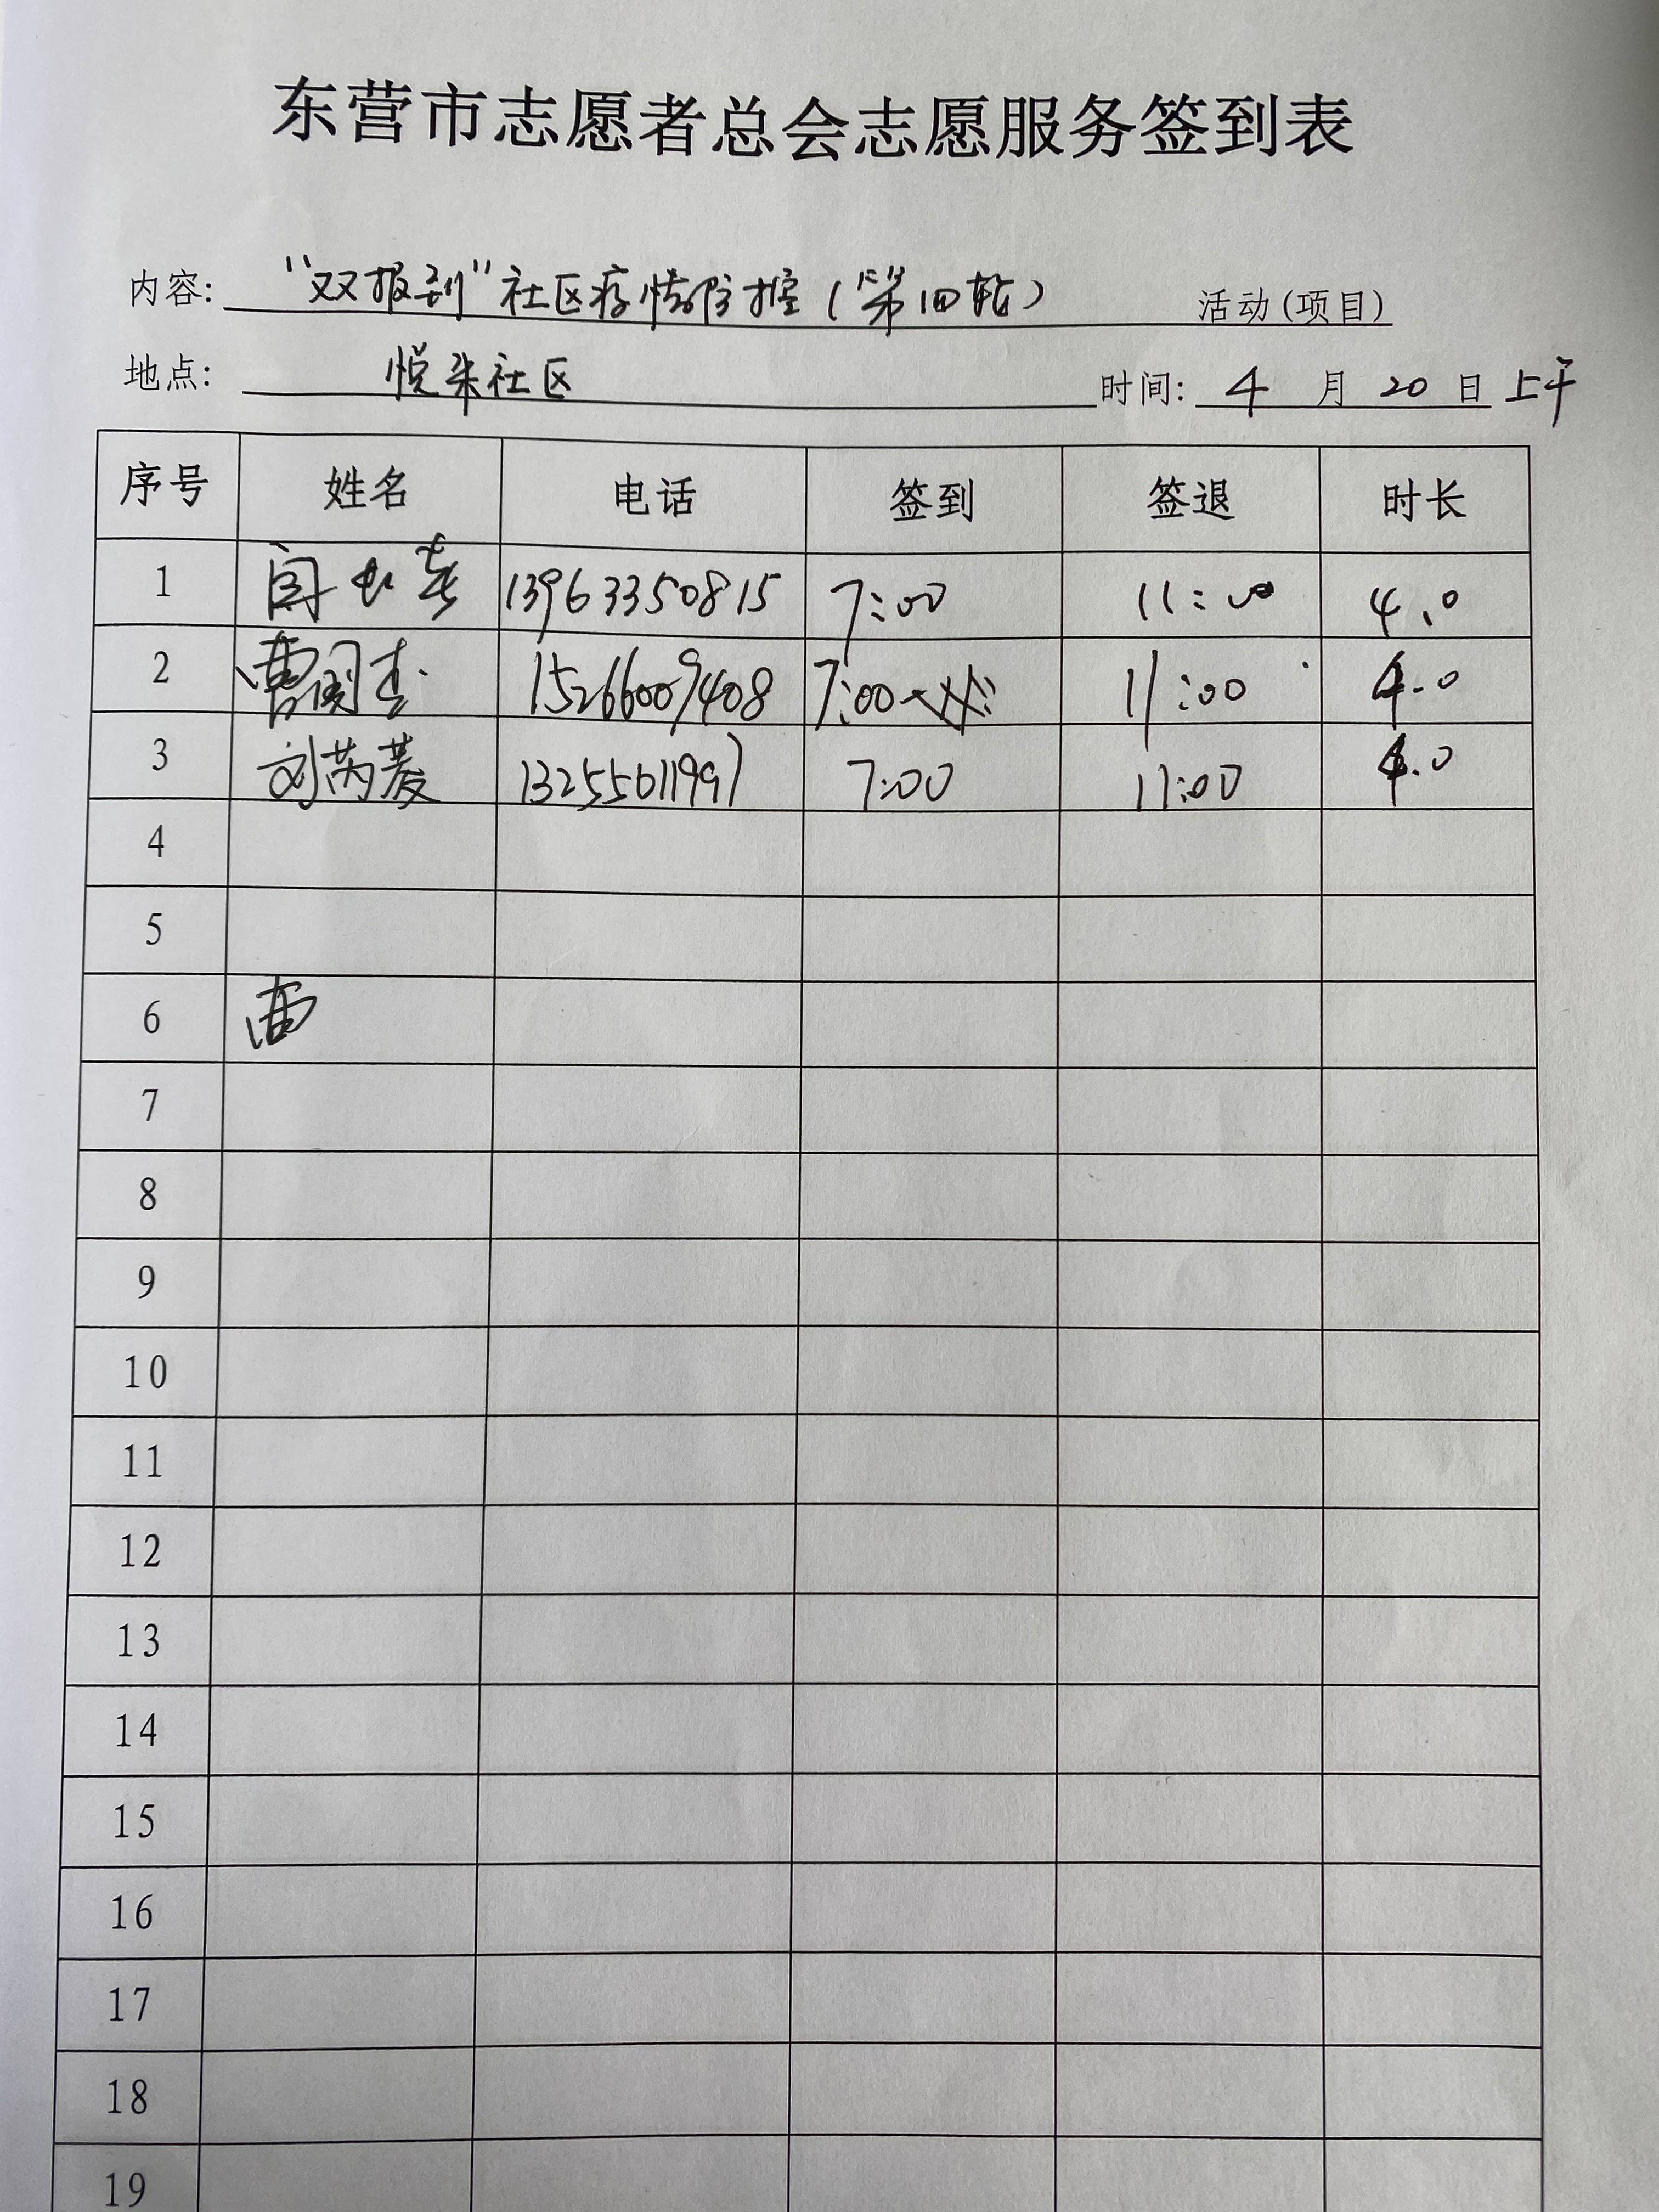 东营市志愿者总会志愿服务签到表
内容: "双报到"社区疫情防控(第四轮) 活动(项目)
地点: 悦来社区 时间: 4 月 20 日 上午
序号 姓名 电话 签到 签退 时长
1 13963350815 7:00 11:00 4.0
2 15266009408 7:00 11:00 4.0
3 刘芮菱 13255611997 7:00 11:00 4.0
4
5
6
7
8
9
10
11
12
13
14
15
16
17
18
19